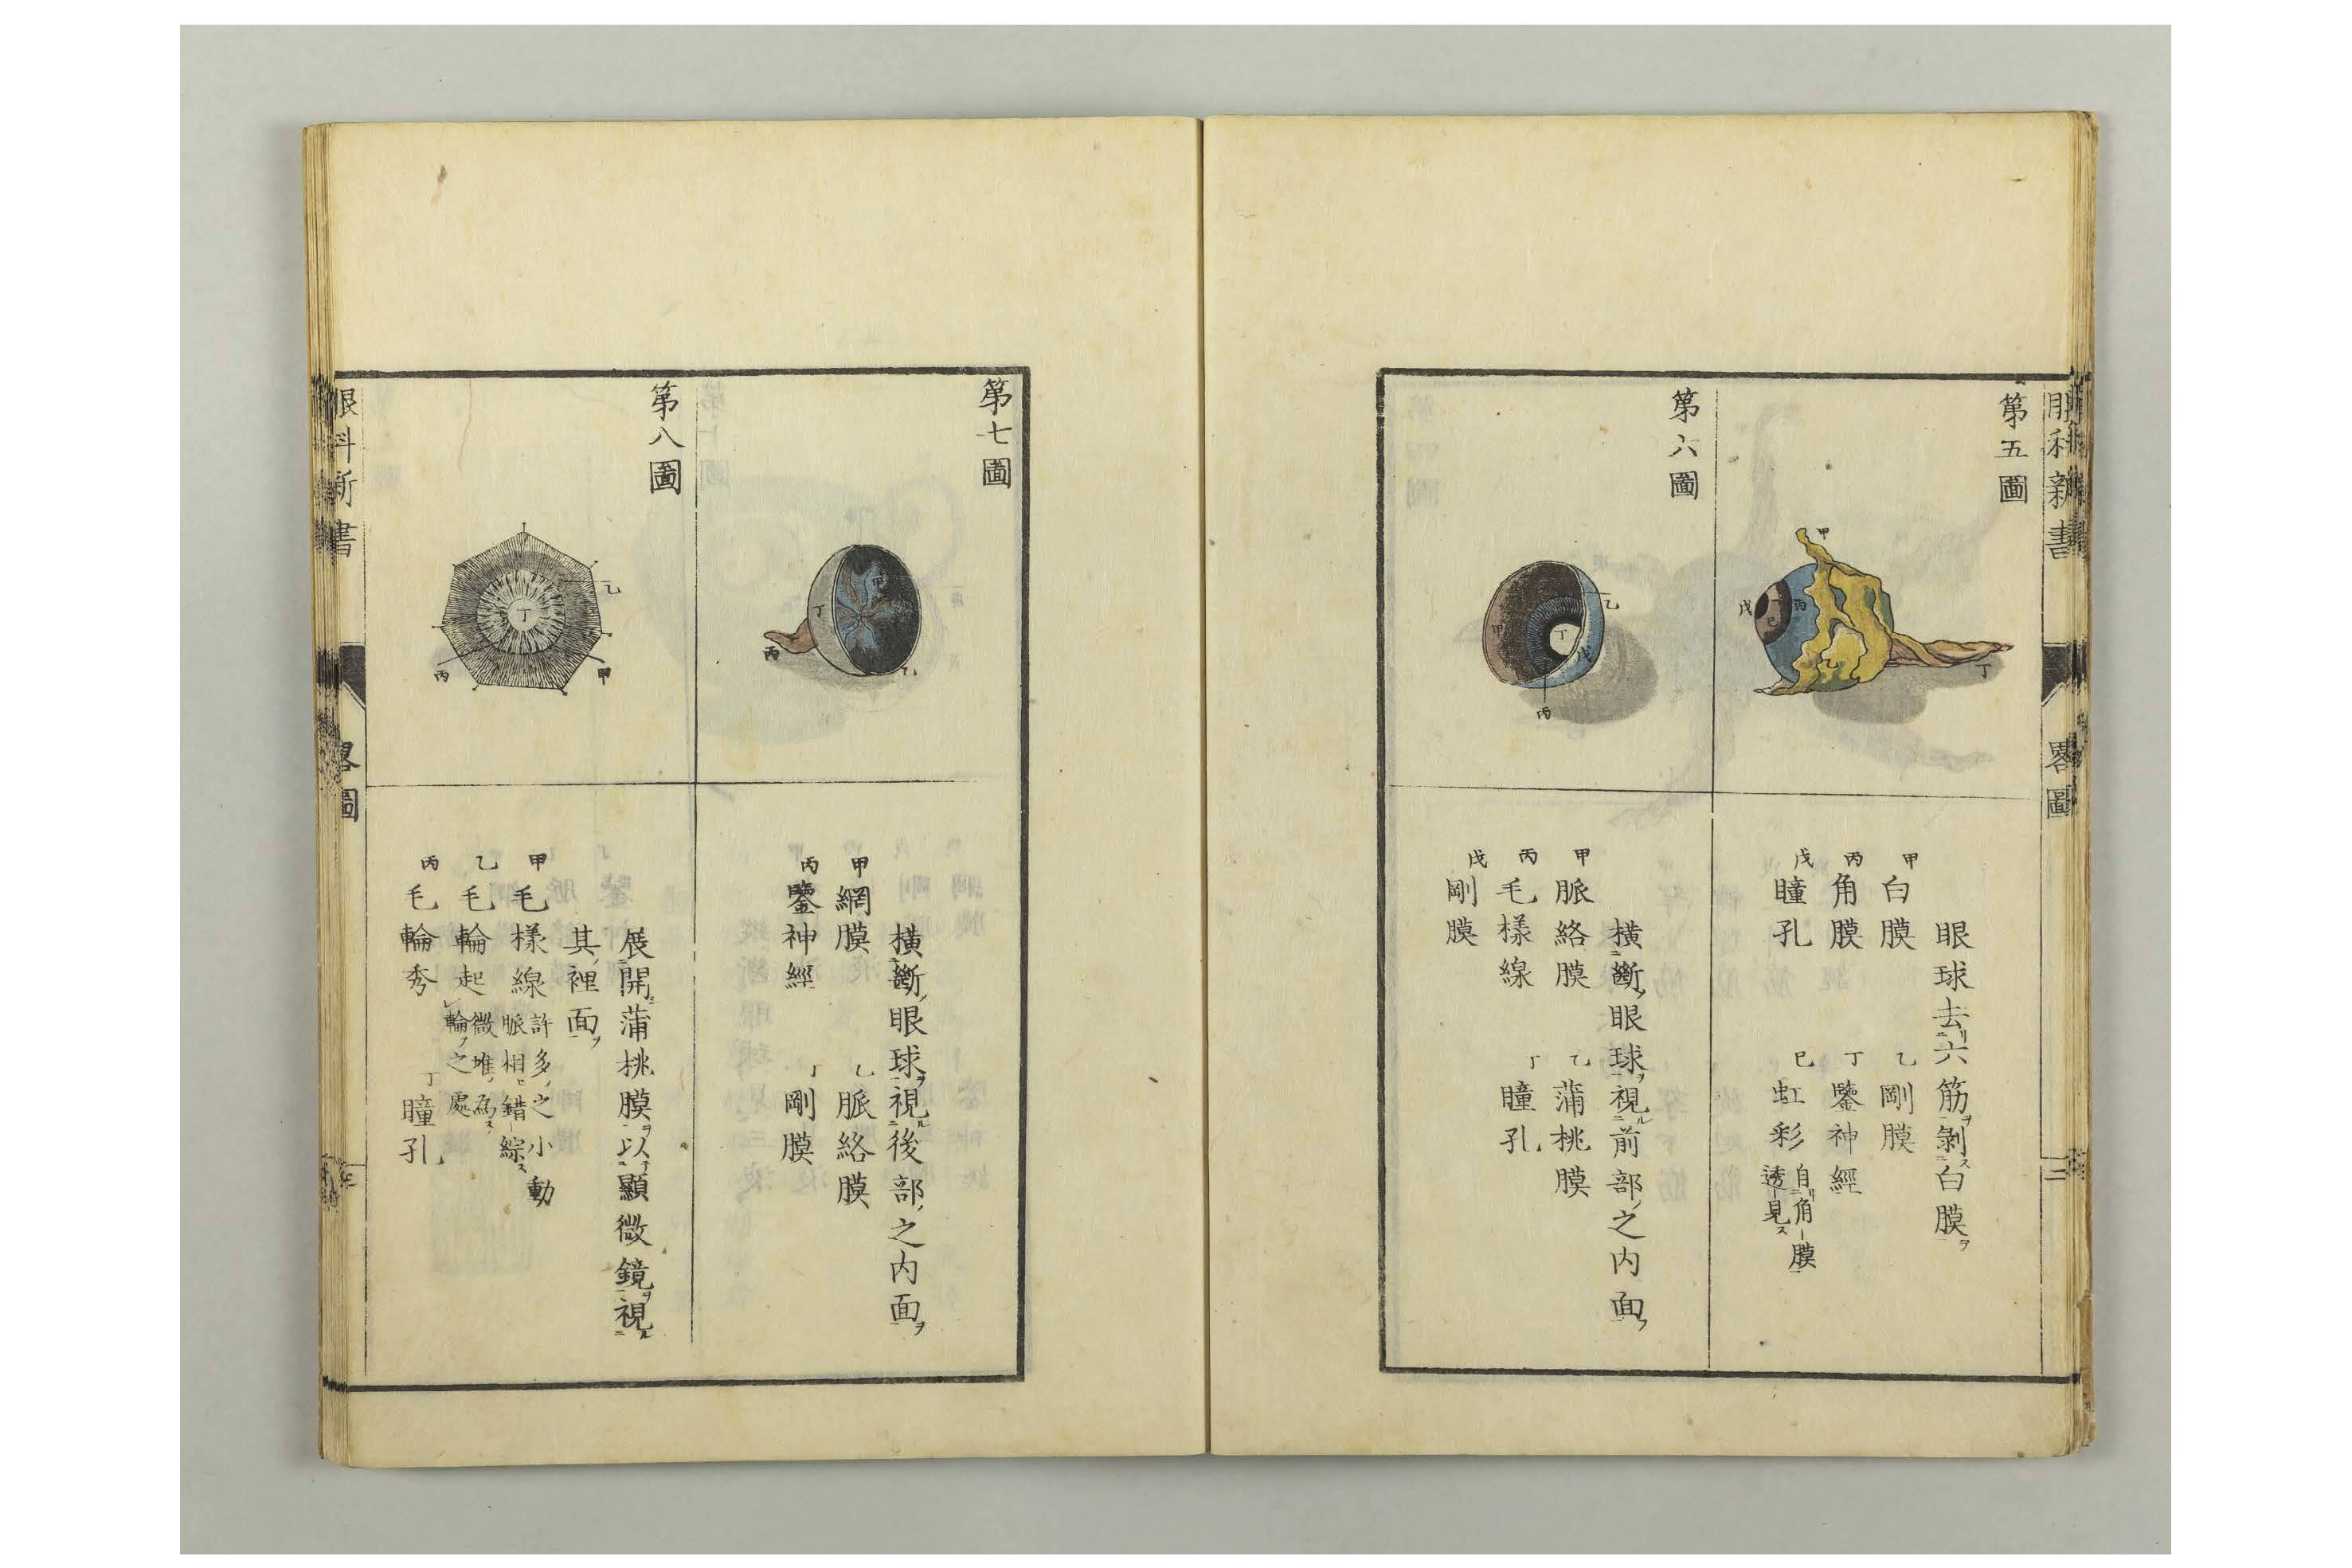 眼科新書
畧圖
二
第五圖
甲
乙
丙
丁
戊
巳
眼球去リ六筋ヲ剝ス白膜ヲ
甲 白膜
乙 剛膜
丙 角膜
丁 鑒神經
戊 瞳孔
巳 虹彩
自リ角膜
透見ス
第六圖
甲
乙
丙
丁
戊
横斷ノ眼球ヲ視ル前部ノ之内面ヲ
甲 脈絡膜
乙 蒲桃膜
丙 毛樣線
丁 瞳孔
戊 剛膜
第七圖
甲
乙
丙
丁
横斷ノ眼球ヲ視ル後部ノ之内面ヲ
甲 網膜
乙 脈絡膜
丙 鑒神經
丁 剛膜
第八圖
甲
乙
丙
丁
展開蒲桃膜ヲ以テ顯微鏡ヲ視ル
其ノ裡面ヲ
甲 毛樣線
許多ノ之小動
脈相ヒ錯綜ス
乙 毛輪起
微堆ノ為ス
輪ヲ之處
丙 毛輪秀
丁 瞳孔
眼科新書
畧圖